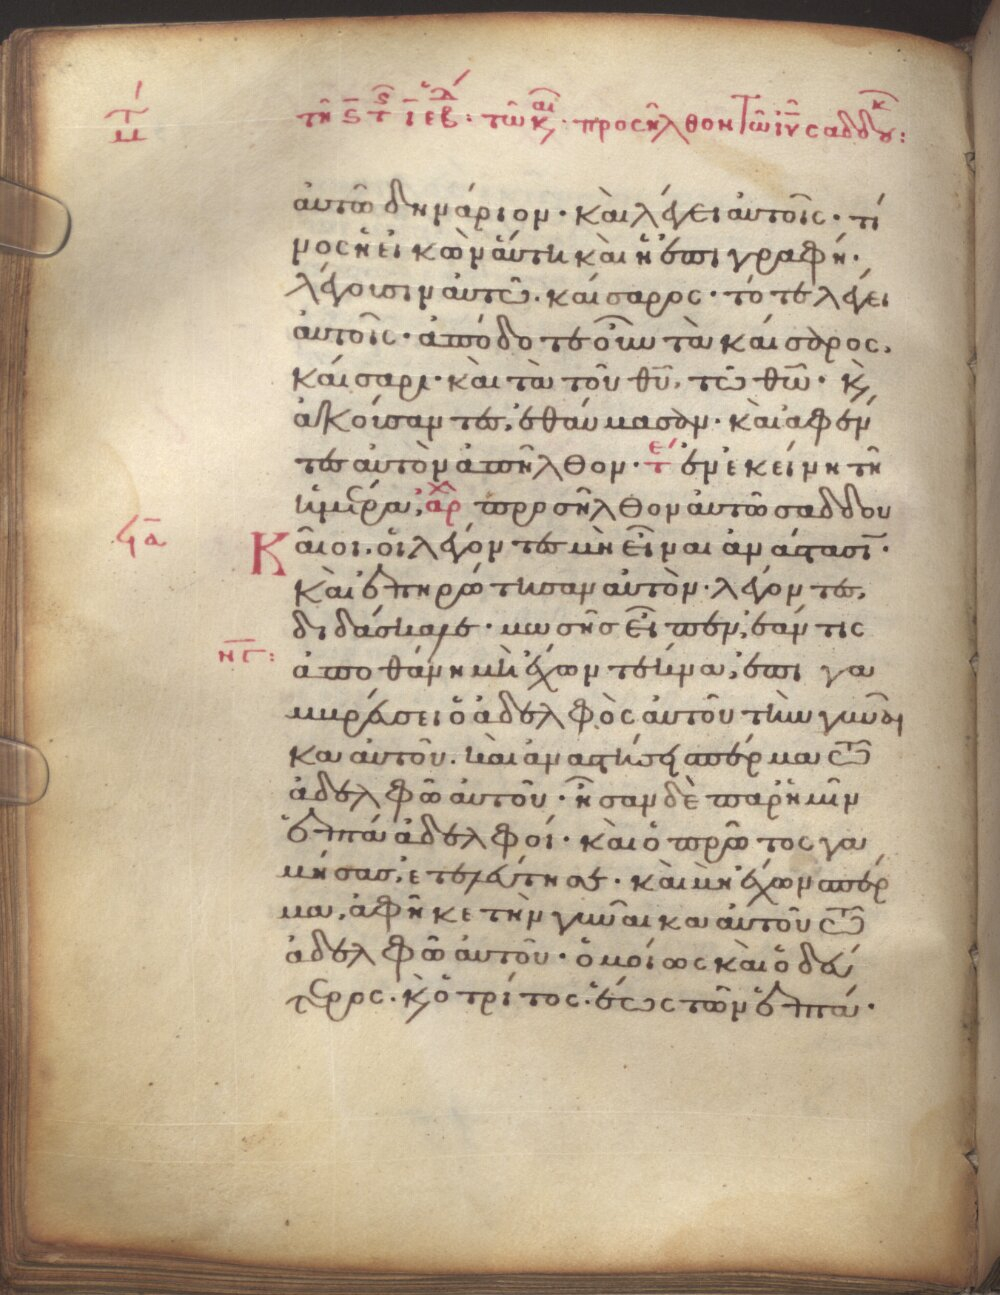 τῆ ς τῆς ιε ἑβδ · τῶ καιρῶ · προσῆλθον τῶ ιυ σαδδουκ :
αὐτῶ δηνάριον · καὶ λέγει αὐτοῖς · τί
νος ἡ εἰκὼν ἅυτη καὶ ἡ ἐπιγραφή ·
λέγουσιν αὐτῶ · καίσαρος · τότε λέγει
αὐτοῖς · ἀπόδοτε οὖν τὰ καίσαρος,
καίσαρι · καὶ τὰ τοῦ θυ, τῶ θω · κ,
ἀκούσαντες, ἐθαύμασαν · καὶ αφέν
τες αὐτὸν ἀπῆλθον · τε ἐν ἐκείνη τῆ
ἡμέρα, αρχ προσῆλθον αὐτῶ σαδδου
Καῖοι · οἱ λέγοντες μὴ εἶναι ἀνάστασι ·
καὶ ἐπηρώτησαν αὐτὸν · λέγοντες,
διδάσκαλε · μωσῆς εἶπεν, ἐάν τις
ἀποθάνη μὴ ἔχων τέκνα, ἐπι γα
μβρέυσει ὁ ἀδελφὸς αὐτοῦ τὴν γυναῖ
κα αὐτοῦ · καὶ ἀναστήσει σπέρμα τῶ
ἀδελφῶ αὐτοῦ · ἦσαν δὲ παρ ἡμῖν
ἑπτὰ ἀδελφοί · καὶ ὁ πρῶτος γα
μήσας, ἐτελέυτησε · καὶ μὴ ἔχων σπέρ
μα, ἀφῆκε τὴν γυναῖκα αὐτοῦ τῶ
ἀδελφῶ αὐτοῦ · ὁμοίως καὶ ὁ δεύ
τερος · κ, ὁ τρίτος · ἕως τῶν ἑπτά ·